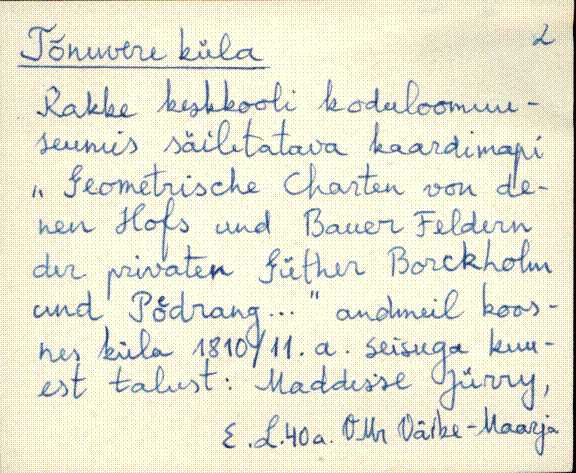 Tõnuvere küla 2
Rakke keskkooli koduloomuu-
seumis säilitatava kaardimapi
„ Geometrische Charten von de-
nen Hofs und Bauer Feldern
der privaten Güther Borckholm
und Pödrang..." andmeil koos-
nes küla 1810/11. a. seisuga kuu-
est talust: Maddisse Jürry,
E. L. 40 a. VMr Väike-Maarja